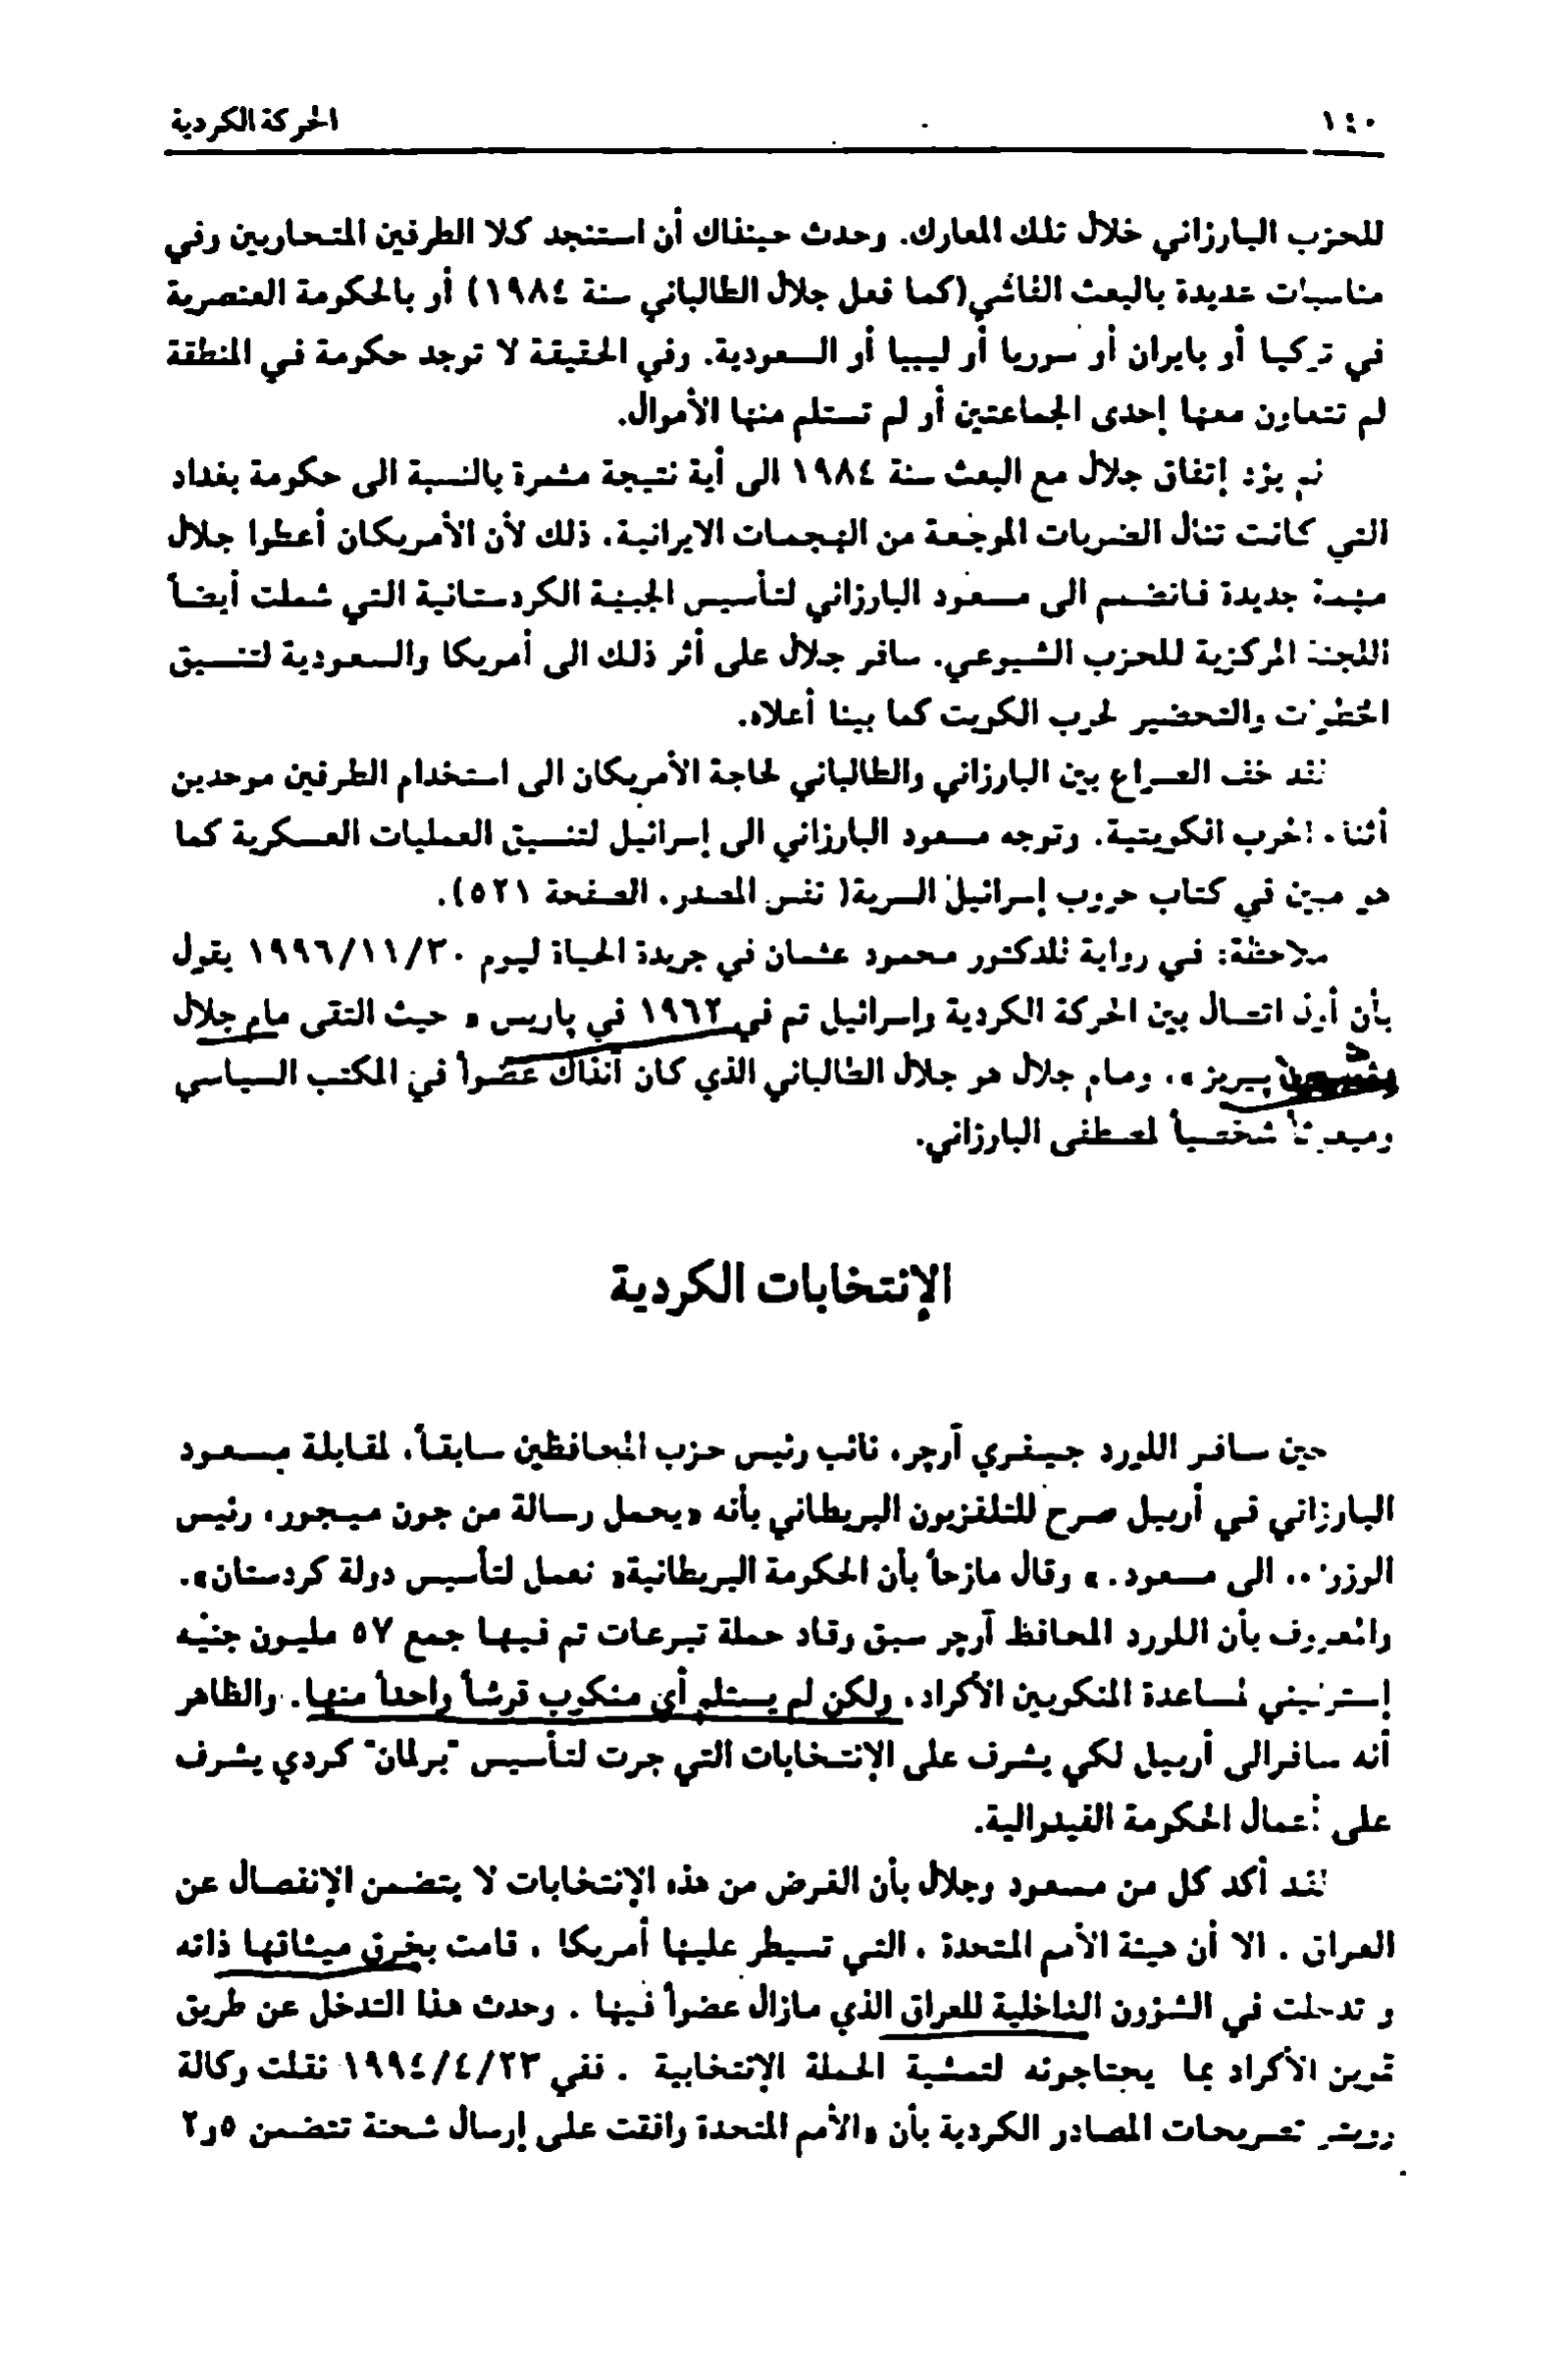 ١٤٠ الحركة الكردية
للحزب البارزاني خلال تلك المعارك. وحدث حينذاك أن استنجد كلا الطرفين المتحاربين وفي
مناسبات عديدة بالبعث الفاشي(كما فعل جلال الطالباني سنة ١٩٨٤) أو بالحكومة العنصرية
في تركيا أو بايران أو سوريا أو ليبيا أو السعودية. وفي الحقيقة لا توجد حكومة في المنطقة
لم تتعاون معها إحدى الجماعتين أو لم تستلم منها الأموال.
لم يؤد إتفاق جلال مع البعث سنة ١٩٨٤ الى أية نتيجة مثمرة بالنسبة الى حكومة بغداد
التي كانت تنال الضربات الموجعة من الهجمات الايرانية، ذلك لأن الأمريكان أعطوا جلال
مهمة جديدة فانضم الى مسعود البارزاني لتأسيس الجبهة الكردستانية التي شملت أيضاً
اللجنة المركزية للحزب الشيوعي. سافر جلال على أثر ذلك الى أمريكا والسعودية لتنسيق
الخطوات والتحضير لحرب الكويت كما بينا أعلاه.
لقد خف الصراع بين البارزاني والطالباني لحاجة الأمريكان الى استخدام الطرفين موحدين
أثناء الحرب الكويتية. وتوجه مسعود البارزاني الى إسرائيل لتنسيق العمليات العسكرية كما
هو مبين في كتاب حروب إسرائيل السرية( نفس المصدر، الصفحة ٥٢١).
ملاحظة: في رواية للدكتور محمود عثمان في جريدة الحياة ليوم ١٩٩٦/١١/٣٠ يقول
بأن أول اتصال بين الحركة الكردية وإسرائيل تم في ١٩٦٢ في باريس « حيث التقى مام جلال
بيريز»، ومام جلال هو جلال الطالباني الذي كان آنذاك عضواً في المكتب السياسي
ومبعوثاً شخصياً لمصطفى البارزاني.
الإنتخابات الكردية
حين سافر اللورد جيفري آرچر، نائب رئيس حزب المحافظين سابقاً، لمقابلة مسعود
البارزاني في أربيل صرح للتلفزيون البريطاني بأنه «يحمل رسالة من جون ميجور، رئيس
الوزراء، الى مسعود.» وقال مازحاً بأن الحكومة البريطانية« تعمل لتأسيس دولة كردستان».
والمعروف بأن اللورد المحافظ آرچر سبق وقاد حملة تبرعات تم فيها جمع ٥٧ مليون جنيه
إسترليني لمساعدة المنكوبين الأكراد، ولكن لم يستلم أي منكوب قرشاً واحداً منها. والظاهر
أنه سافرالى أربيل لكي يشرف على الإنتخابات التي جرت لتأسيس "برلمان" كردي يشرف
على أعمال الحكومة الفيدرالية.
لقد أكد كل من مسعود وجلال بأن الغرض من هذه الإنتخابات لا يتضمن الإنفصال عن
العراق . الا أن هيئة الأمم المتحدة ، التي تسيطر عليها أمريكا ، قامت بخرق ميثاقها ذاته
و تدخلت في الشؤون الداخلية للعراق الذي مازال عضواً فيها . وحدث هذا التدخل عن طريق
تموين الأكراد بما يحتاجونه لتمشية الحملة الإنتخابية . ففي ١٩٩٤/٤/٢٣ نقلت وكالة
رويتر تصريحات المصادر الكردية بأن «الأمم المتحدة وافقت على إرسال شحنة تتضمن ٥و٢